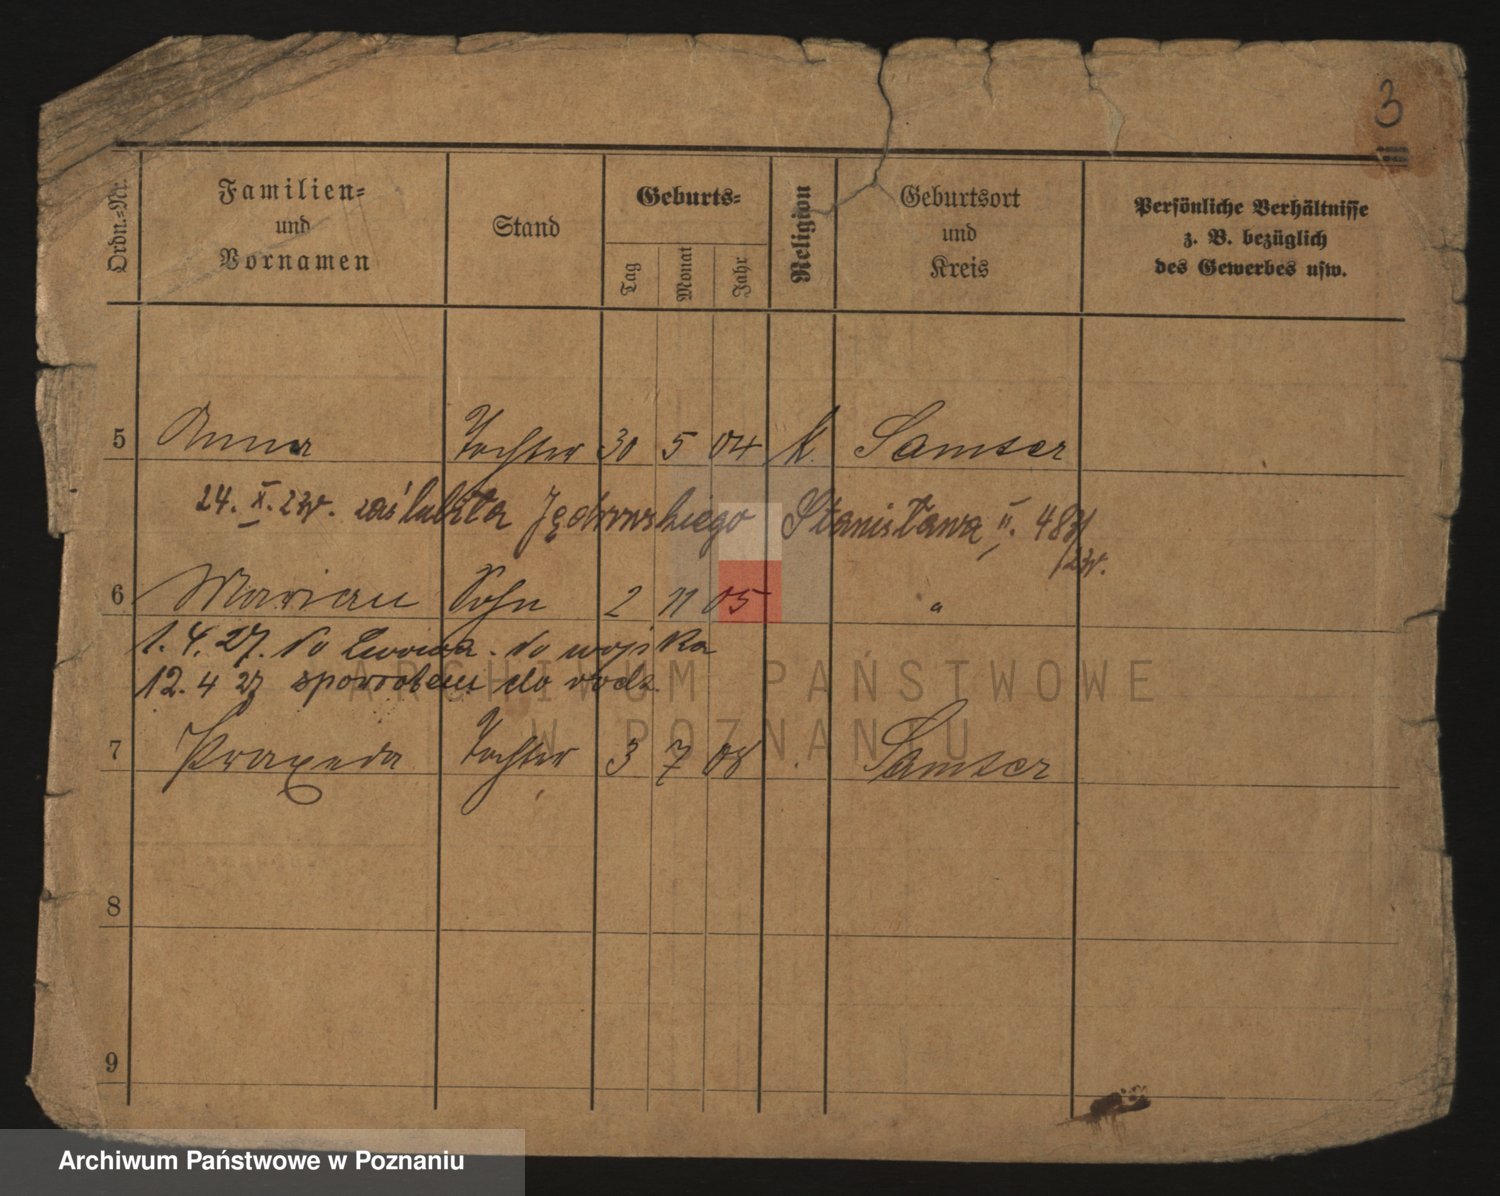 3
Ordn.=Nr.
Familien=
und
Vornamen
Stand
Geburts=
Tag
Monat
Jahr
Religion
Geburtsort
und
Kreis
Persönliche Verhältnisse
z. B. bezüglich
des Gewerbes usw.
5 Anna Tochter 30 5 04 K. Samter
24. X. 23r. zaślubiła Stanisława II. 48
/23r.
6 Marian Sohn 2 11 05 "
1.4.27. do Lwowa. do wojska
12.4 27 spowrotem do rodz.
7 Praxeda Tochter 3 7 08 Samter
8
9
ARCHIWUM PAŃSTWOWE
W POZNANIU
Archiwum Państwowe w Poznaniu